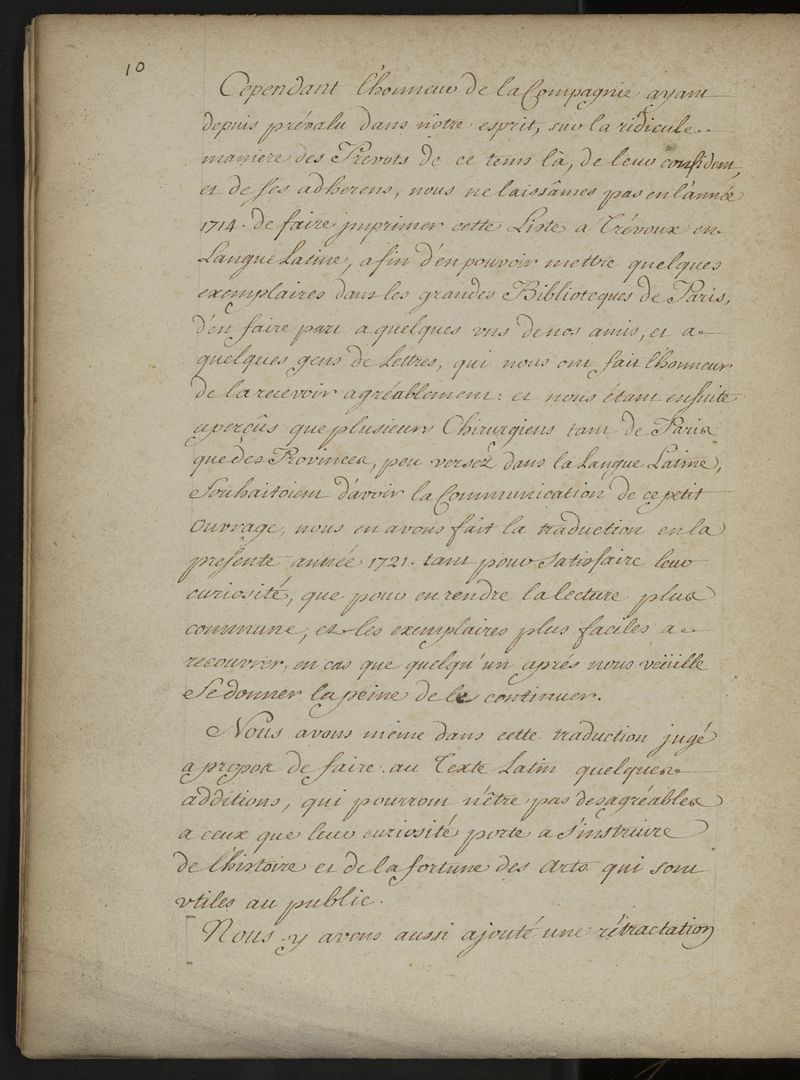 10
Cependant l'honneur de la Compagnie ayant
depuis prévalu dans nôtre esprit, sur la ridicule
maniere des Prevots de ce tems là, de leur confident,
et de ses adherens, nous ne laissâmes pas en l'année
1714. de faire jmprimer cette Liste a Trévoux en
Langue Latine, afin d'en pouvoir mettre quelques
exemplaires dans les grandes Biblioteques de Paris,
d'en faire part a quelques vns de nos amis, et a
quelques gens de Lettres, qui nous ont fait l'honneur
de la recevoir agréablement: et nous étant ensuite
aperçûs que plusieurs Chirurgiens tant de Paris
que des Provinces, peu versez dans la Langue Latine,
Souhaitoient d'avoir la Communication de ce petit
Ouvrage, nous en avons fait la traduction en la
presente année 1721. tant pour Satisfaire leur
curiosité, que pour en rendre la lecture plus
commune, et les exemplaires plus faciles a
recouvrer, en cas que quelqu'un aprés nous veüille
Se donner la peine de le continuer.
Nous avons même dans cette traduction jugé
a propos de faire au Texte Latin quelques
additions, qui pourront n'être pas desagréables
a ceux que leur curiosité porte a S'instruire
de l'histoire et de la fortune des Arts qui sont
vtiles au public.
Nous y avons aussi ajouté une rétractation